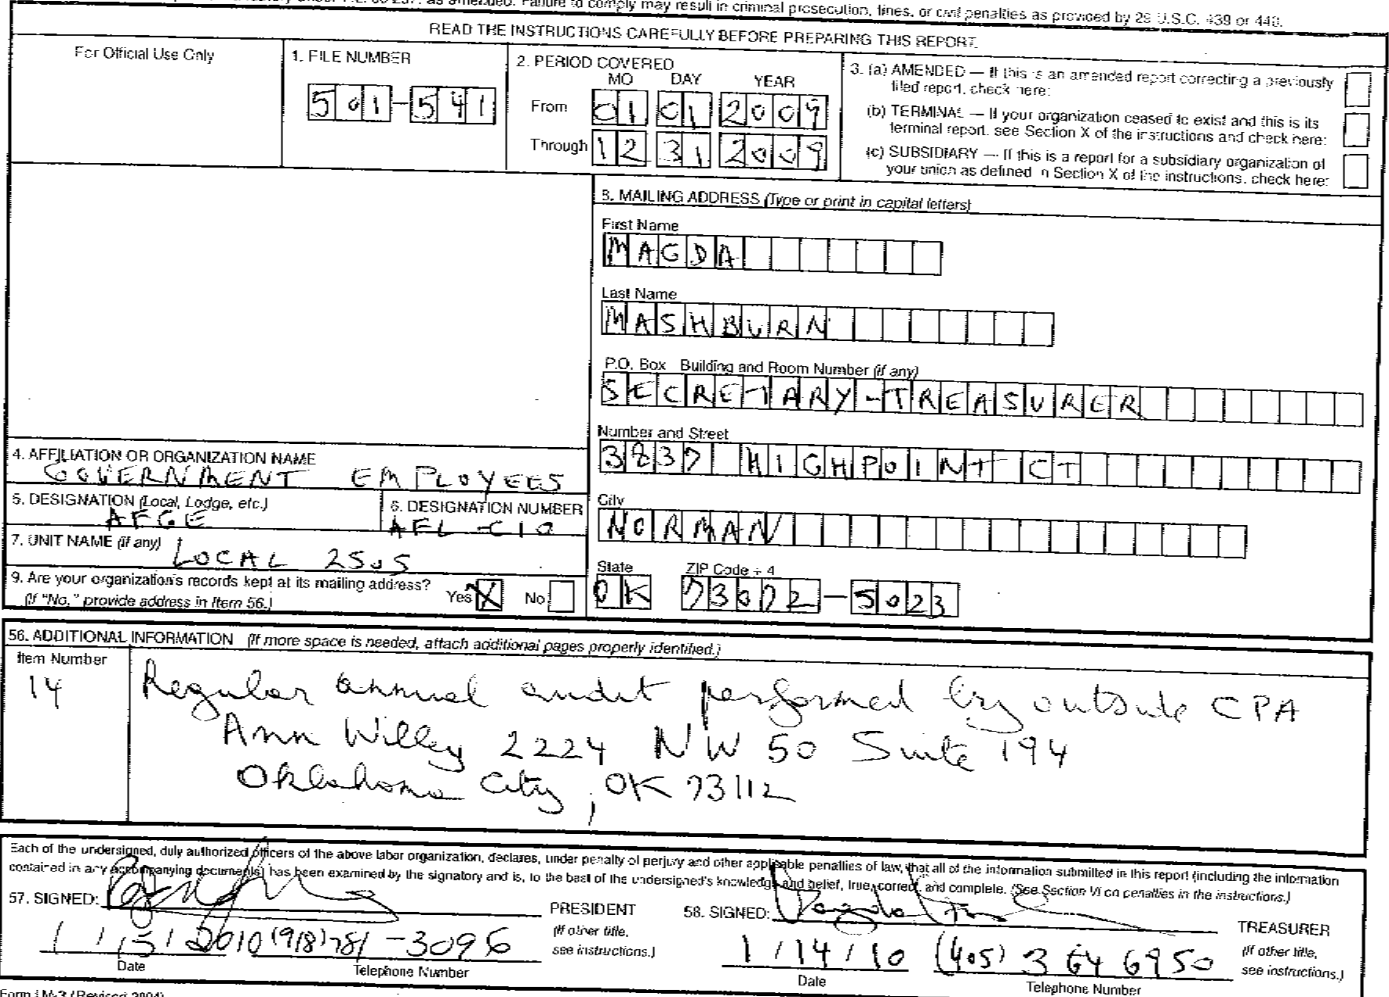 as amended. Failure to comply may result in criminal prosecution, fines, or civil penalties as provided by 29 U.S.C. 439 or 440.
READ THE INSTRUCTIONS CAREFULLY BEFORE PREPARING THIS REPORT.
For Official Use Only
1. FILE NUMBER
501-541
2. PERIOD COVERED
MO DAY YEAR
From 01 01 2009
Through 12 31 2009
3. (a) AMENDED — If this is an amended report correcting a previously
filed report, check here:
(b) TERMINAL — If your organization ceased to exist and this is its
terminal report, see Section X of the instructions and check here:
(c) SUBSIDIARY — If this is a report for a subsidiary organization of
your union as defined in Section X of the instructions, check here:
8. MAILING ADDRESS (Type or print in capital letters)
First Name
MAGDA
Last Name
MASHBURN
P.O. Box Building and Room Number (if any)
SECRETARY-TREASURER
Number and Street
3837 HIGHPOINT CT
City
NORMAN
State ZIP Code + 4
OK 73072-5023
4. AFFILIATION OR ORGANIZATION NAME
GOVERNMENT EMPLOYEES
5. DESIGNATION (Local, Lodge, etc.)
AFGE
6. DESIGNATION NUMBER
AFL-CIO
7. UNIT NAME (if any) LOCAL 2505
9. Are your organization's records kept at its mailing address?
(If "No," provide address in Item 56.) Yes X No
56. ADDITIONAL INFORMATION (If more space is needed, attach additional pages properly identified.)
Item Number
14
Regular annual audit performed by outside CPA
Ann Willey 2224 NW 50 Suite 194
Oklahoma City, OK 73112
Each of the undersigned, duly authorized officers of the above labor organization, declares, under penalty of perjury and other applicable penalties of law, that all of the information submitted in this report (including the information
contained in any accompanying documents) has been examined by the signatory and is, to the best of the undersigned's knowledge and belief, true, correct, and complete. (See Section VI on penalties in the instructions.)
57. SIGNED:
PRESIDENT
(If other title,
see instructions.)
1/15/2010 (918)781-3096
Date Telephone Number
58. SIGNED:
TREASURER
(If other title,
see instructions.)
1/14/10 (405) 364 6950
Date Telephone Number
Form LM-3 (Revised 2004)